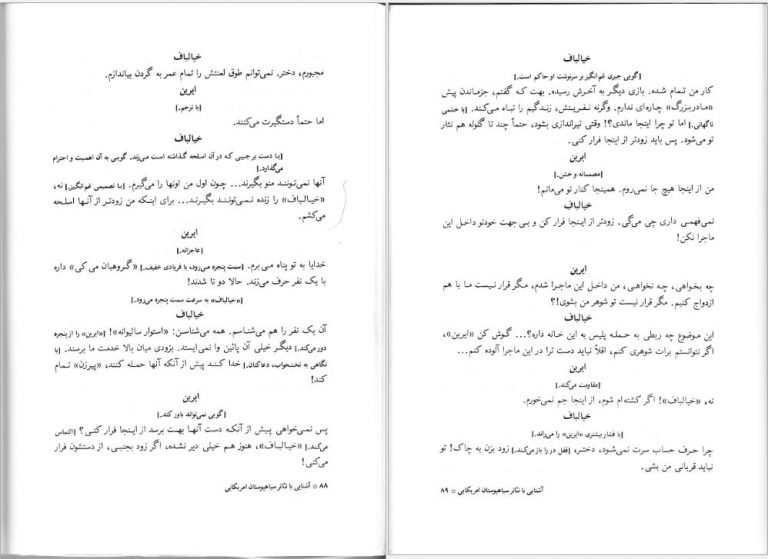 خیالباف
مجبورم، دختر. نمی‌توانم طوق لعنتش را تمام عمر به گردن بیاندازم.
ایرین
[با ترحم.]
اما حتماً دستگیرت می‌کنند.
خیالباف
[با دست بر جیبی که در آن اسلحه گذاشته است می‌زند. گویی به آن اهمیت و احترام
می‌گذارد.]
آنها نمی‌تونند منو بگیرند... چون اول من اونها را می‌گیرم. [با تصمیمی غم‌انگیز.] نه،
«خیالباف» را زنده نمی‌توننـد بگیرنـد... برای اینکه من زودتر از آنها اسلحه
می‌کشم.
ایرین
[عاجزانه.]
خدایا به تو پناه می برم. [سمت پنجره می‌رود، با فریادی خفیف.] «گروهبان می کی» داره
با یک نفر حرف می‌زند. حالا دو تا شدند!
[«خیالباف» به سرعت سمت پنجره می‌رود.]
خیالباف
آن یک نفر را هم می‌شناسم. همه می‌شناسن: «استوار سالیوانه»! [«ایرین» را از پنجره
دور می‌کند.] دیگر خیلی آن پائین وا نمی‌ایستد. بزودی میان بالا خدمت ما برسند. [با
نگاهی به تختخواب، دعاکنان.] خدا کند پیش از آنکه آنها حمله کنند، «پیرزن» تمام
کند!
ایرین
[گویی نمی‌تواند باور کند.]
پس نمی‌خواهی پیش از آنکه دست آنها بهت برسد از اینجا فرار کنی؟ [التماس
می‌کند.] «خیالباف»، هنوز هم خیلی دیر نشده، اگر زود بجنبی، از دستشون فرار
می‌کنی!
۸۸ □ آشنایی با تئاتر سیاهپوستان امریکایی
خیالباف
[گویی جبری غم‌انگیز بر سرنوشت او حاکم است.]
کار من تمام شده. بازی دیگر به آخرش رسیده. بهت که گفتم، جزماندن پیش
«مادربزرگ» چاره‌ای ندارم. وگرنه نفرینش، زندگیم را تباه می‌کند. [با خشمی
ناگهانی.] اما تو چرا اینجا ماندی؟! وقتی تیراندازی بشود، حتماً چند تا گلوله هم نثار
تو می‌شود. پس باید زودتر از اینجا فرار کنی.
ایرین
[مصممانه و خشن.]
من از اینجا هیچ جا نمی‌روم. همینجا کنار تو می‌مانم!
خیالباف
نمی‌فهمی داری چی می‌گی. زودتر از اینجا فرار کن و بی‌جهت خودتو داخل این
ماجرا نکن!
ایرین
چه بخواهی، چه نخواهی، من داخل این ماجرا شدم، مگر قرار نیست ما با هم
ازدواج کنیم. مگر قرار نیست تو شوهر من بشوی!؟
خیالباف
این موضوع چه ربطی به حمله پلیس به این خانه داره؟... گوش کن «ایرین»،
اگر نتوانستم برات شوهری کنم، اقلاً نباید دست ترا در این ماجرا آلوده کنم...
ایرین
[مقاومت می‌کند.]
نه، «خیالباف»! اگر کشته‌ام شوم، از اینجا جم نمی‌خورم.
خیالباف
[با فشار بیشتری «ایرین» را می‌راند.]
چرا حرف حساب سرت نمی‌شود، دختر، [قفل در را باز می‌کند.] زود بزن به چاک! تو
نباید قربانی من بشی.
آشنایی با تئاتر سیاهپوستان امریکایی □ ۸۹